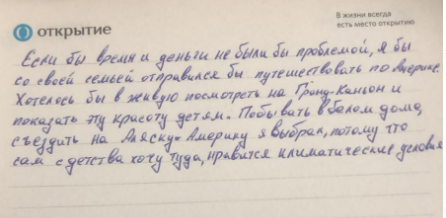 открытие
В жизни всегда
есть место открытию
Если бы время и деньги не были бы проблемой, я бы
со своей семьей отправился бы путешествовать по Америке.
Хотелось бы в живую посмотреть на Гранд-Каньон и
показать эту красоту детям. Побывать в белом доме,
съездить на Аляску. Америку я выбрал, потому что
сам с детства хочу туда, нравятся климатические условия